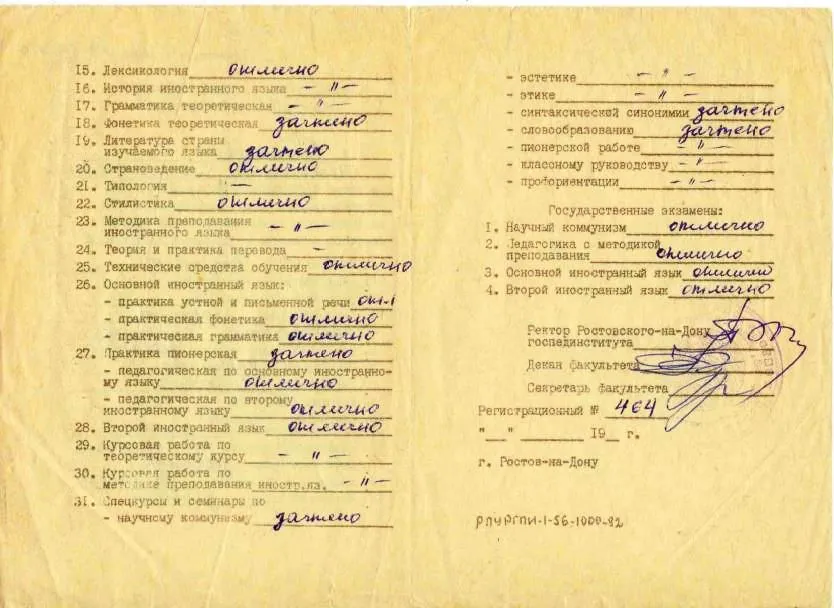 15. Лексикология отлично
16. История иностранного языка -"-
17. Грамматика теоретическая -"-
18. Фонетика теоретическая зачтено
19. Литература страны
изучаемого языка зачтено
20. Страноведение отлично
21. Типология -
22. Стилистика отлично
23. Методика преподавания
иностранного языка -"-
24. Теория и практика перевода -
25. Технические средства обучения отлично
26. Основной иностранный язык:
- практика устной и письменной речи отл
- практическая фонетика отлично
- практическая грамматика отлично
27. Практика пионерская зачтено
- педагогическая по основному иностранно-
му языку отлично
- педагогическая по второму
иностранному языку отлично
28. Второй иностранный язык отлично
29. Курсовая работа по
теоретическому курсу -"-
30. Курсовая работа по
методике преподавания иностр.яз. -"-
31. Спецкурсы и семинары по
- научному коммунизму зачтено
- эстетике -"-
- этике -"-
- синтаксической синонимии зачтено
- словообразованию зачтено
- пионерской работе -"-
- классному руководству -"-
- профориентации -"-
Государственные экзамены:
1. Научный коммунизм отлично
2. Педагогика с методикой
преподавания отлично
3. Основной иностранный язык отлично
4. Второй иностранный язык отлично
Ректор Ростовского-на-Дону
госпединститута
Декан факультета
Секретарь факультета
Регистрационный № 464
" " 19 г.
г. Ростов-на-Дону
РПУРГПИ-1-56-1000-82